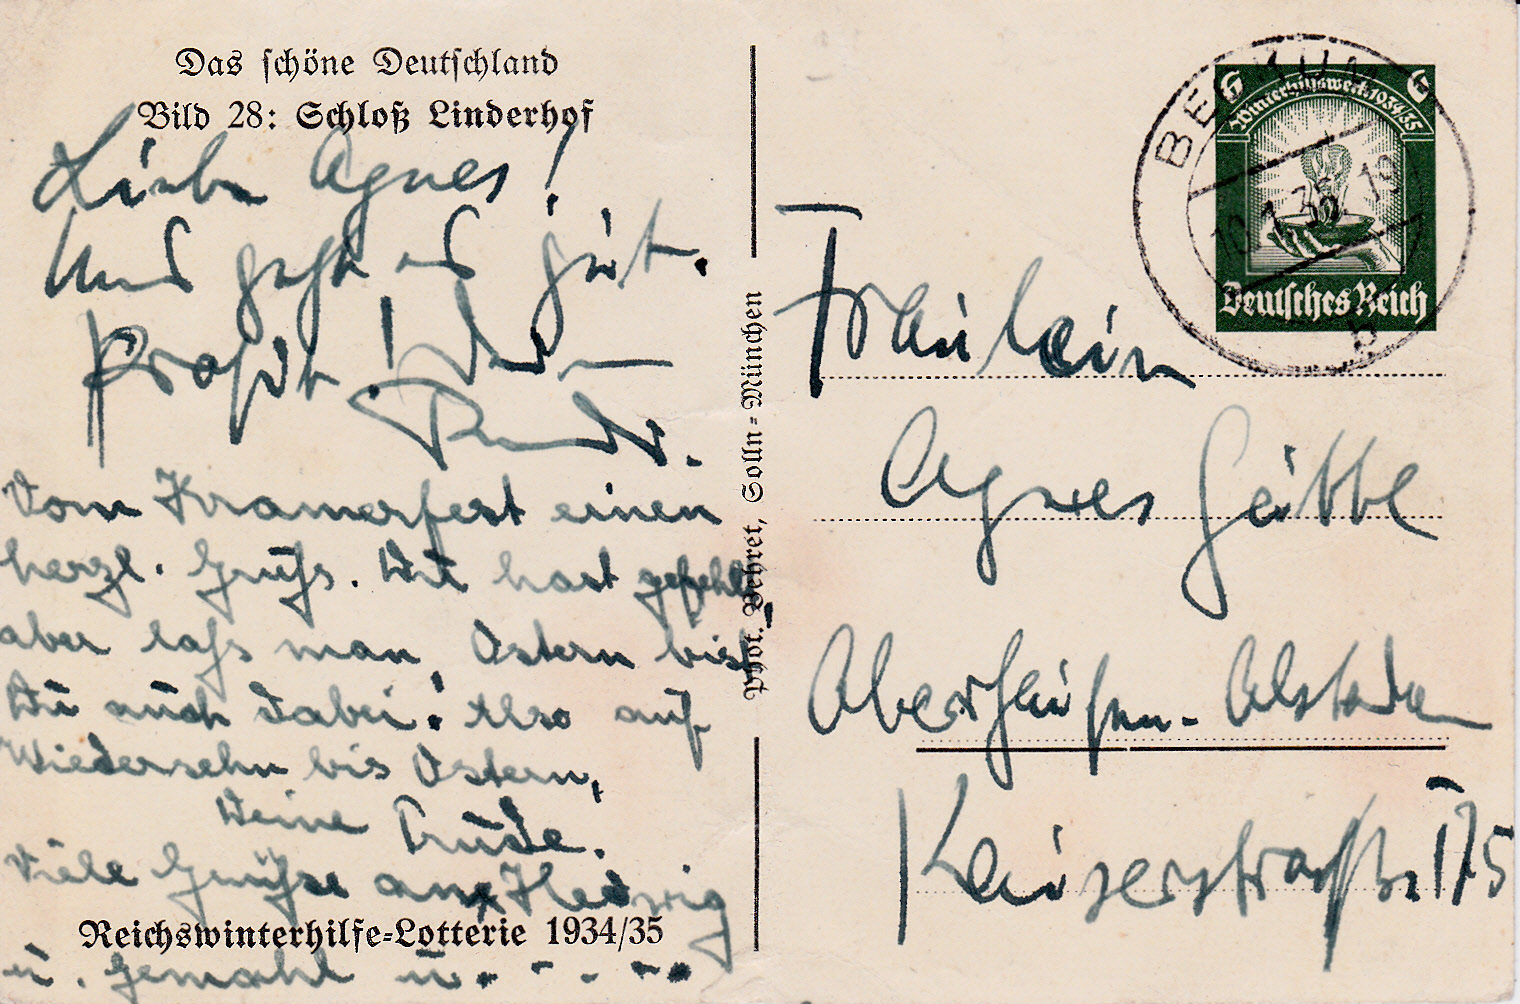 Das schöne Deutschland
Bild 28: Schloß Linderhof
Liebe Agnes!
Uns geht es gut.
Prosit!
Vom Kramerfest einen
herzl. Gruß. Du hast gefehlt
aber laß man, Ostern bist
Du auch dabei! Also auf
Wiedersehn bis Ostern,
Deine Trude.
Viele Grüße an Hedwig
Reichswinterhilfe-Lotterie 1934/35
u. Gemahl u. - - - -
Phot. Behret, Solln-München
6 6
Winterhilfswerk 1934/35
Deutsches Reich
BECKUM
10.1.35.19
b
Fräulein
Agnes
Oberhausen-Alstaden
Kaiserstraße 175